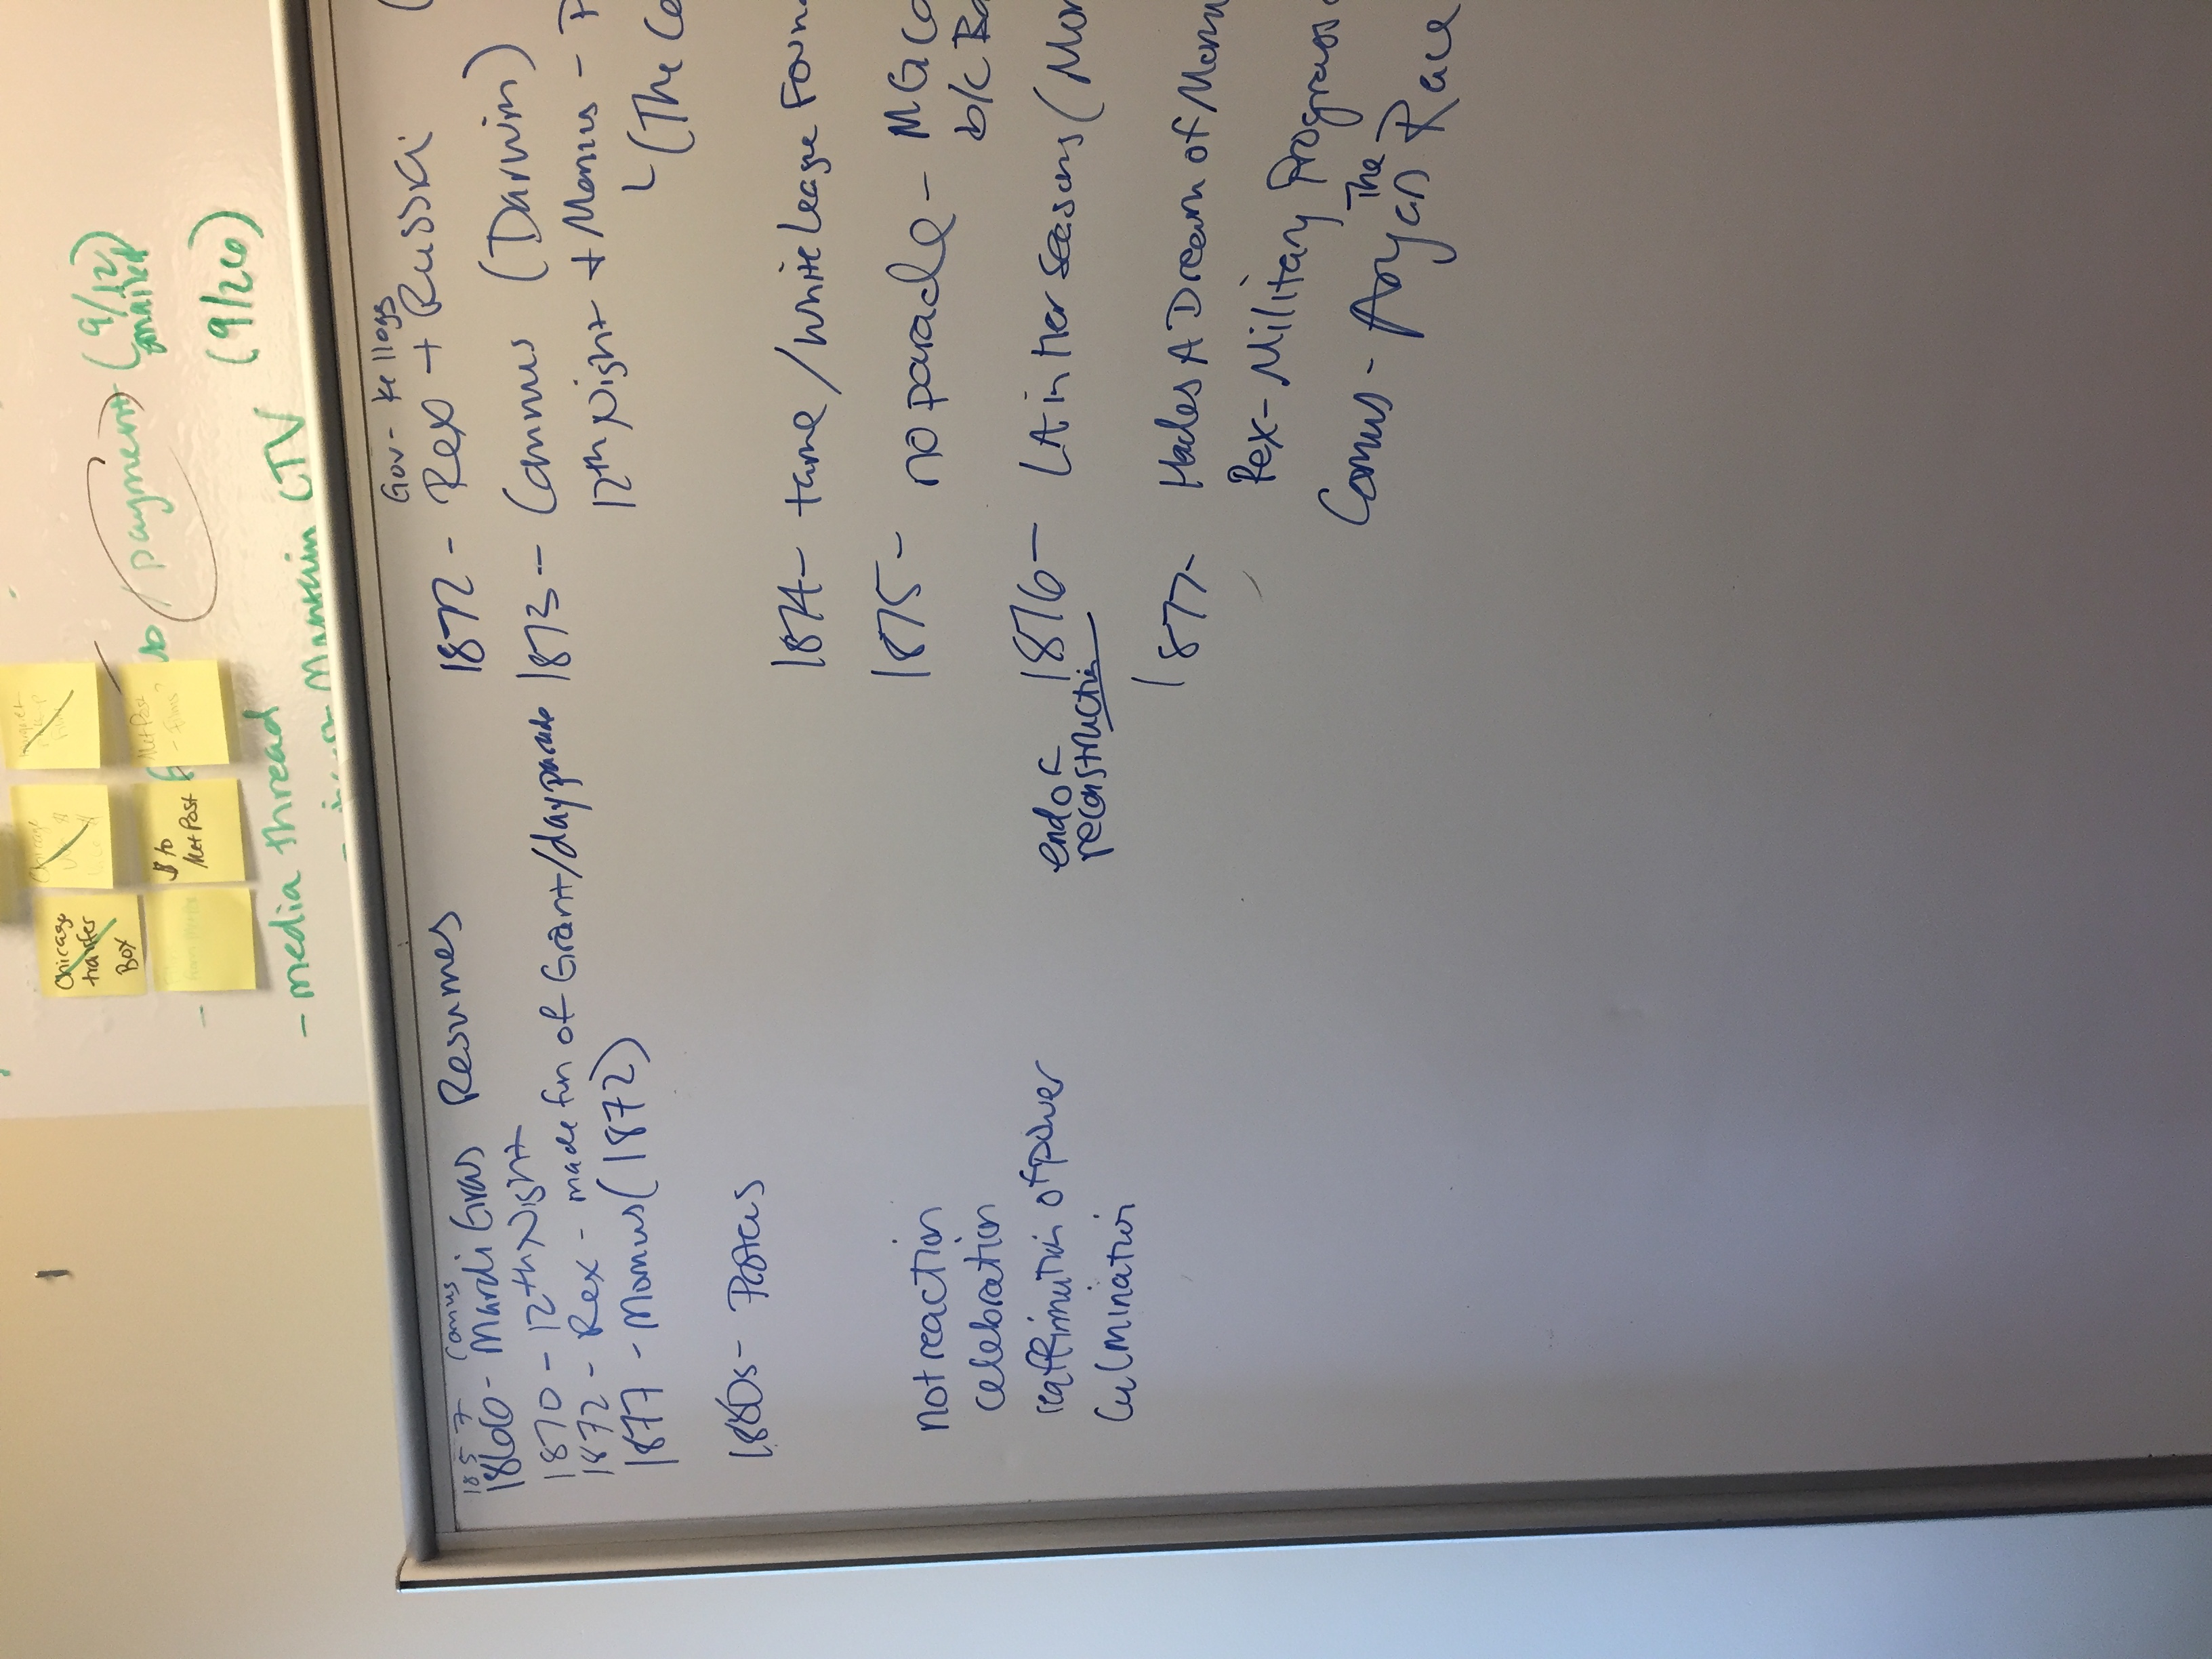 Chicago
transfer
Box
Chicago
$ to
Met Post
Met Post
- Films?
payment (9/12)
emailed
(9/26)
- media thread
Maintain CTV
1857 Comus
1866 - Mardi Gras Resumes
1870 - 12th Night
1872 - Rex - made fun of Grant/day parade
1877 - Momus (1872)
1880s - Proteus
not reaction
celebration
reaffirmation of power
Culmination
Gov - Kelloggs
1872 - Rex + Russki
1873 - Commus (Darwin)
12th Night + Momus - P
(The Co
1874 - tame / White League Foun
1875 - no parade - MG ca
b/c Ba
end of
reconstruction
1876 - LA in Her Seasons (Mom
1877 - Hades A Dream of Momu
Rex - Military Progress
Comus - The Aryan Race